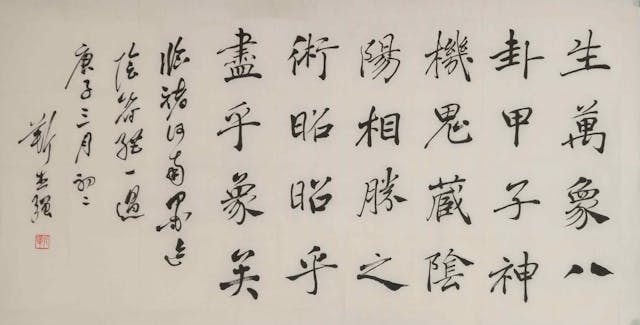 生萬象八
卦甲子神
機鬼藏陰
陽相勝之
術昭昭乎
盡乎象矣
臨褚河南墨迹
陰符經一過
庚子三月初二
靳